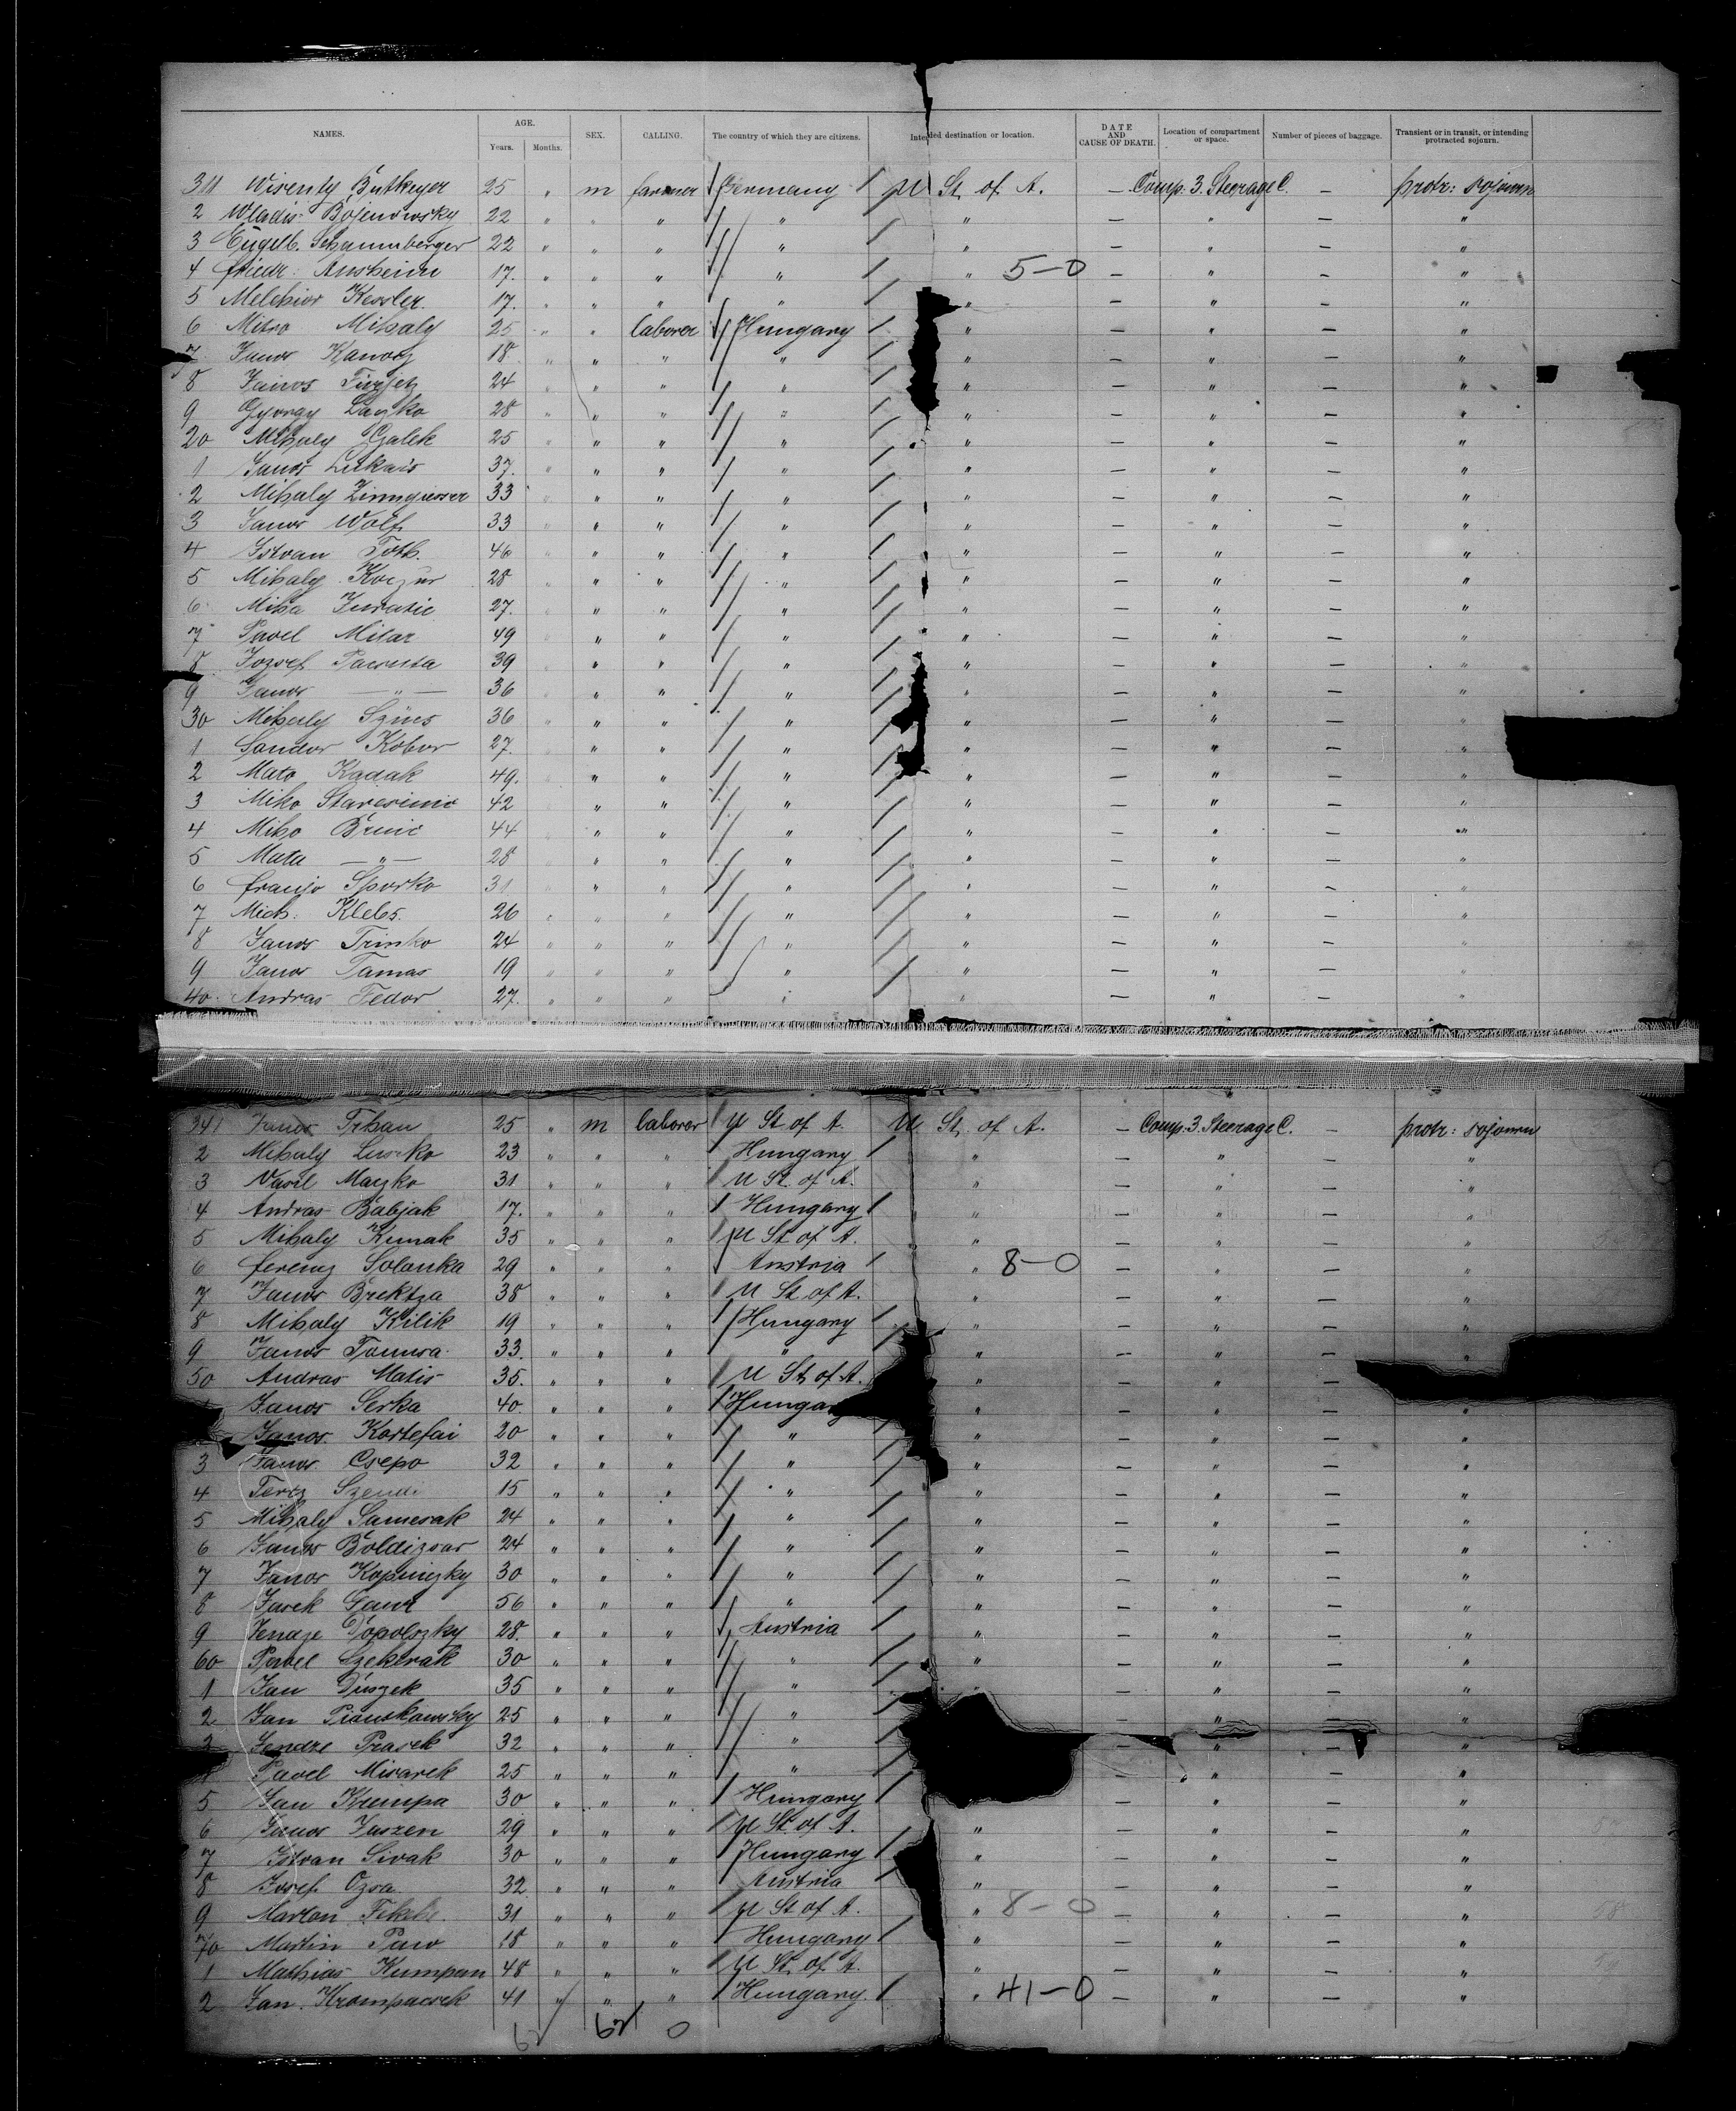 NAMES. AGE. Years. Months. SEX. CALLING. The country of which they are citizens. Intended destination or location. DATE AND CAUSE OF DEATH. Location of compartment or space. Number of pieces of baggage. Transient or in transit, or intending protracted sojourn.
311 25 " m farmer Germany U St. of A. — Comp. 3. Steerage C. — protr: sojourn
2 Wladis. 22 " " " " " — " — "
3 22 " " " " " — " — "
4 17. " " " " " 5-0 — " — "
5 Melchior Kessler 17. " " " " " — " — "
6 Mihaly 25 " " laborer Hungary " — " — "
7 Janos 18 " " " " " — " — "
8 Janos 24 " " " " " — " — "
9 Gyorgy Laszko 28 " " " " " — " — "
20 Mihaly Galek 25 " " " " " — " — "
1 Janos Lukais 37. " " " " " — " — "
2 Mihaly Zinngiesser 33 " " " " " — " — "
3 Janos Wolf 33 " " " " " — " — "
4 Istvan Toth. 46 " " " " " — " — "
5 Mihaly Koczur 28 " " " " " — " — "
6 Miha Juratic 27. " " " " " — " — "
7 Pavel Milar 49 " " " " " — " — "
8 Jozsef Pacsuta 39 " " " " " — " — "
9 Janos — " — 36 " " " " " — " — "
30 Mihaly Szücs 36 " " " " " — " — "
1 Sandor Kobor 27. " " " " " — " — "
2 Mato Kadak 49. " " " " " — " — "
3 Miko Staresinic 42 " " " " " — " — "
4 Miho Brnic 44 " " " " " — " — "
5 Mata — " — 28 " " " " " — " — "
6 Franjo Sporko 31 " " " " " — " — "
7 Mich: Klebs. 26 " " " " " — " — "
8 Janos Trinko 24 " " " " " — " — "
9 Janos Tamas 19 " " " " " — " — "
40. Andras Fedor 27. " " " " " — " — "
341 Janos Trhan 25 " m laborer U St. of A. U St. of A. — Comp. 3. Steerage C. — protr: sojourn
2 Mihaly 23 " " " Hungary " — " — "
3 Vasil Maszko 31 " " " U St. of A. " — " — "
4 Andras Babjak 17. " " " Hungary " — " — "
5 Mihaly Kunak 35 " " " U St. of A. " — " — "
6 Ferencz Solanka 29 " " " Austria " 8-0 — " — "
7 Janos Brektza 38 " " " U St. of A. " — " — "
8 Mihaly Kilik 19 " " " Hungary " — " — "
9 Janos 33. " " " " " — " — "
50 Andras Matis 35. " " " U St. of A. " — " —
Janos Serka 40. " " " Hungary " — " — "
Janos Kortefai 20 " " " " " — " — "
3 Janos Csepo 32 " " " " " — " — "
4 15 " " " " " — " — "
5 Mihaly Samesak 24 " " " " " — " — "
6 Janos Boldizsar 24 " " " " " — " — "
7 Janos Kopinszky 30 " " " " " — " — "
8 56 " " " " " — " — "
9 Topolszky 28. " " " Austria " — " — "
60 Pavel Szekerak 30 " " " " " — " — "
1 Jan Duszek 35 " " " " — " — "
2 Jan 25 " " " " — " — "
3 Jendze Prasek 32 " " " " — " — "
Pavel Misarek 25 " " " " — " — "
5 Jan Krimpa 30 " " " Hungary — " — "
6 Janos Juszen 29 " " " U St. of A. " — " — "
7 Istvan Sivak 30 " " " Hungary " — " — "
8 Josef Ozsa 32 " " " Austria " — " — "
9 Marton 31 " " " U St. of A. " 8-0 — " — "
70 Martin 18 " " " Hungary " — " — "
1 Mathias Kumpan 48 " " " U St. of A. " — " — "
2 Jan. Krompacsek 41 " " " Hungary. " 41-0 — " — "
62 62 0